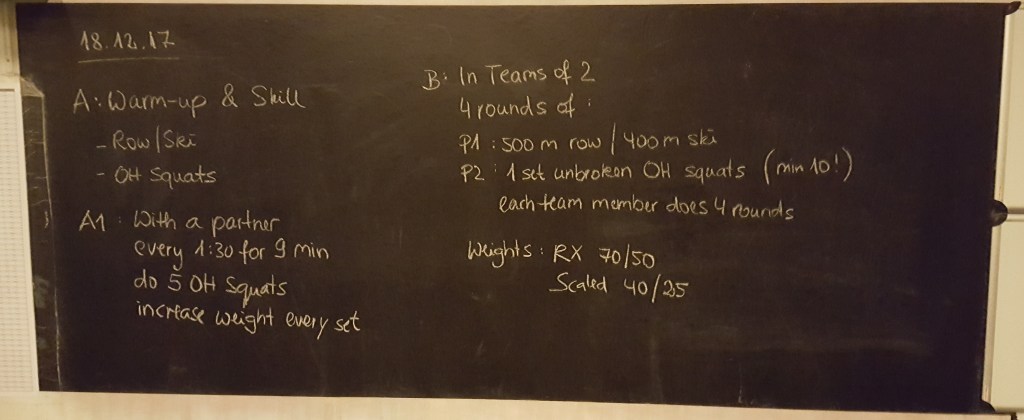 18.12.17
A: Warm-up & Skill
- Row/Ski
- OH Squats
A1: With a partner
every 1:30 for 9 min
do 5 OH Squats
increase weight every set
B: In Teams of 2
4 rounds of:
P1: 500 m row / 400 m ski
P2: 1 set unbroken OH squats (min 10!)
each team member does 4 rounds
Weights: RX 70/50
Scaled 40/25